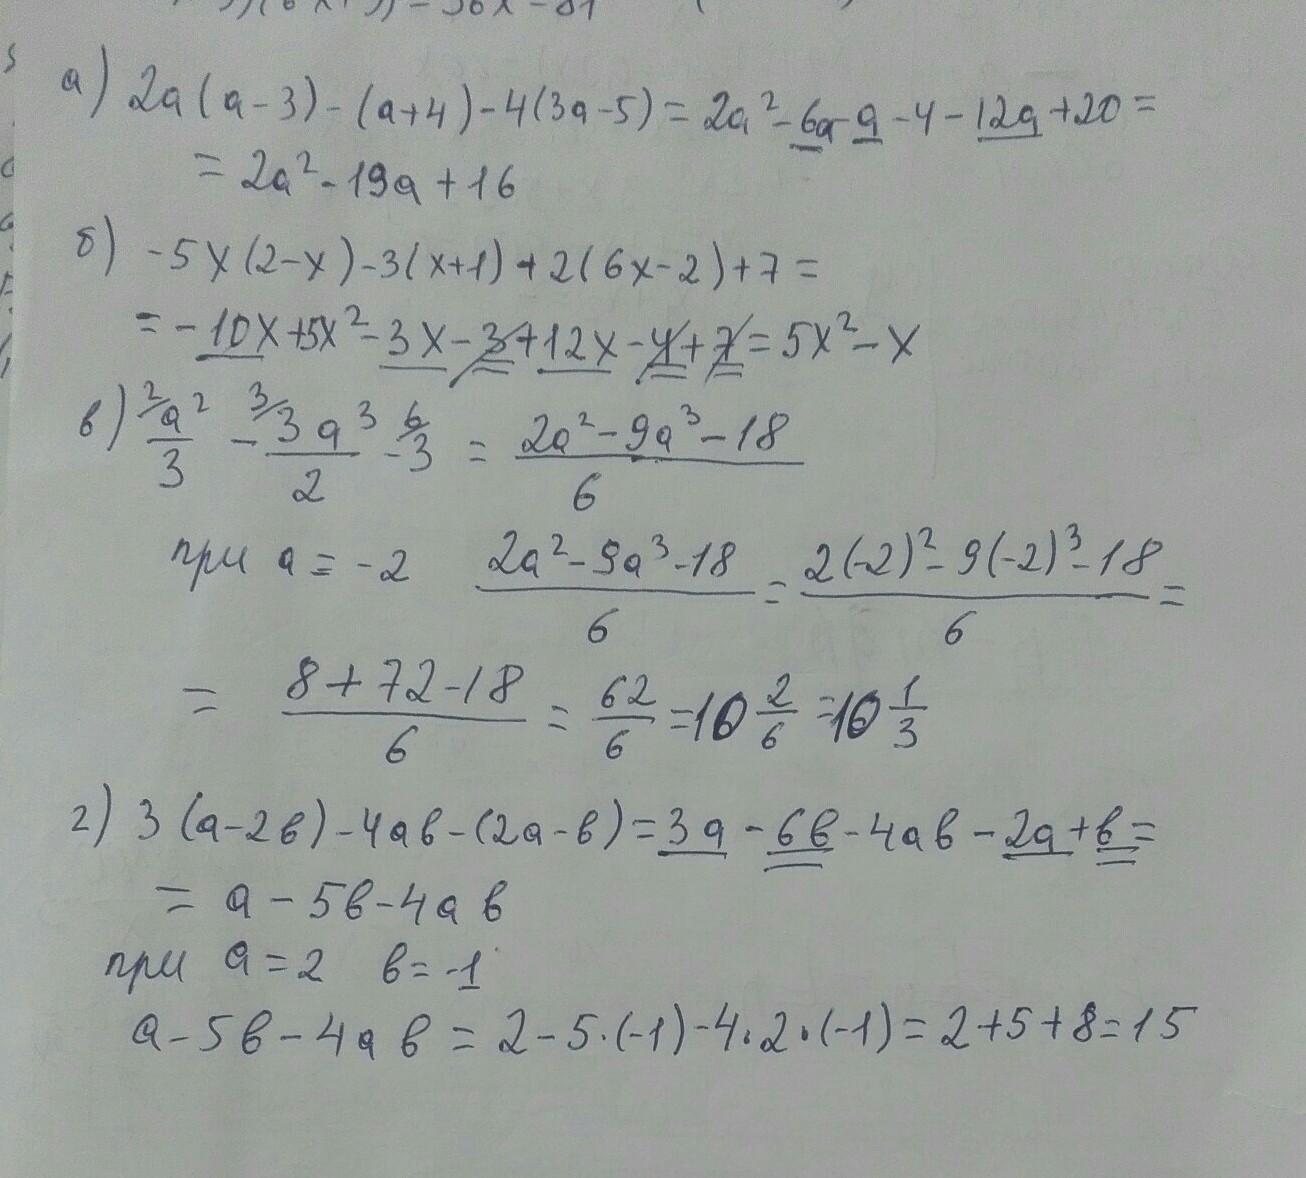 = 36x - 81
а) 2a(a-3)-(a+4)-4(3a-5)=2a²-6a-a-4-12a+20=
= 2a²-19a+16
б) -5x(2-x)-3(x+1)+2(6x-2)+7=
=-10x+5x²-3x-3+12x-4+7=5x²-x
в) ²/a²/3 - ³/3a³/2 - ⁶/3 = (2a²-9a³-18)/6
при a=-2 (2a²-9a³-18)/6 = (2(-2)²-9(-2)³-18)/6 =
= (8+72-18)/6 = 62/6 =10 2/6 =10 1/3
г) 3(a-2в)-4aв-(2a-в)=3a-6в-4aв-2a+в=
= a-5в-4aв
при a=2 в=-1
a-5в-4aв=2-5·(-1)-4·2·(-1)=2+5+8=15